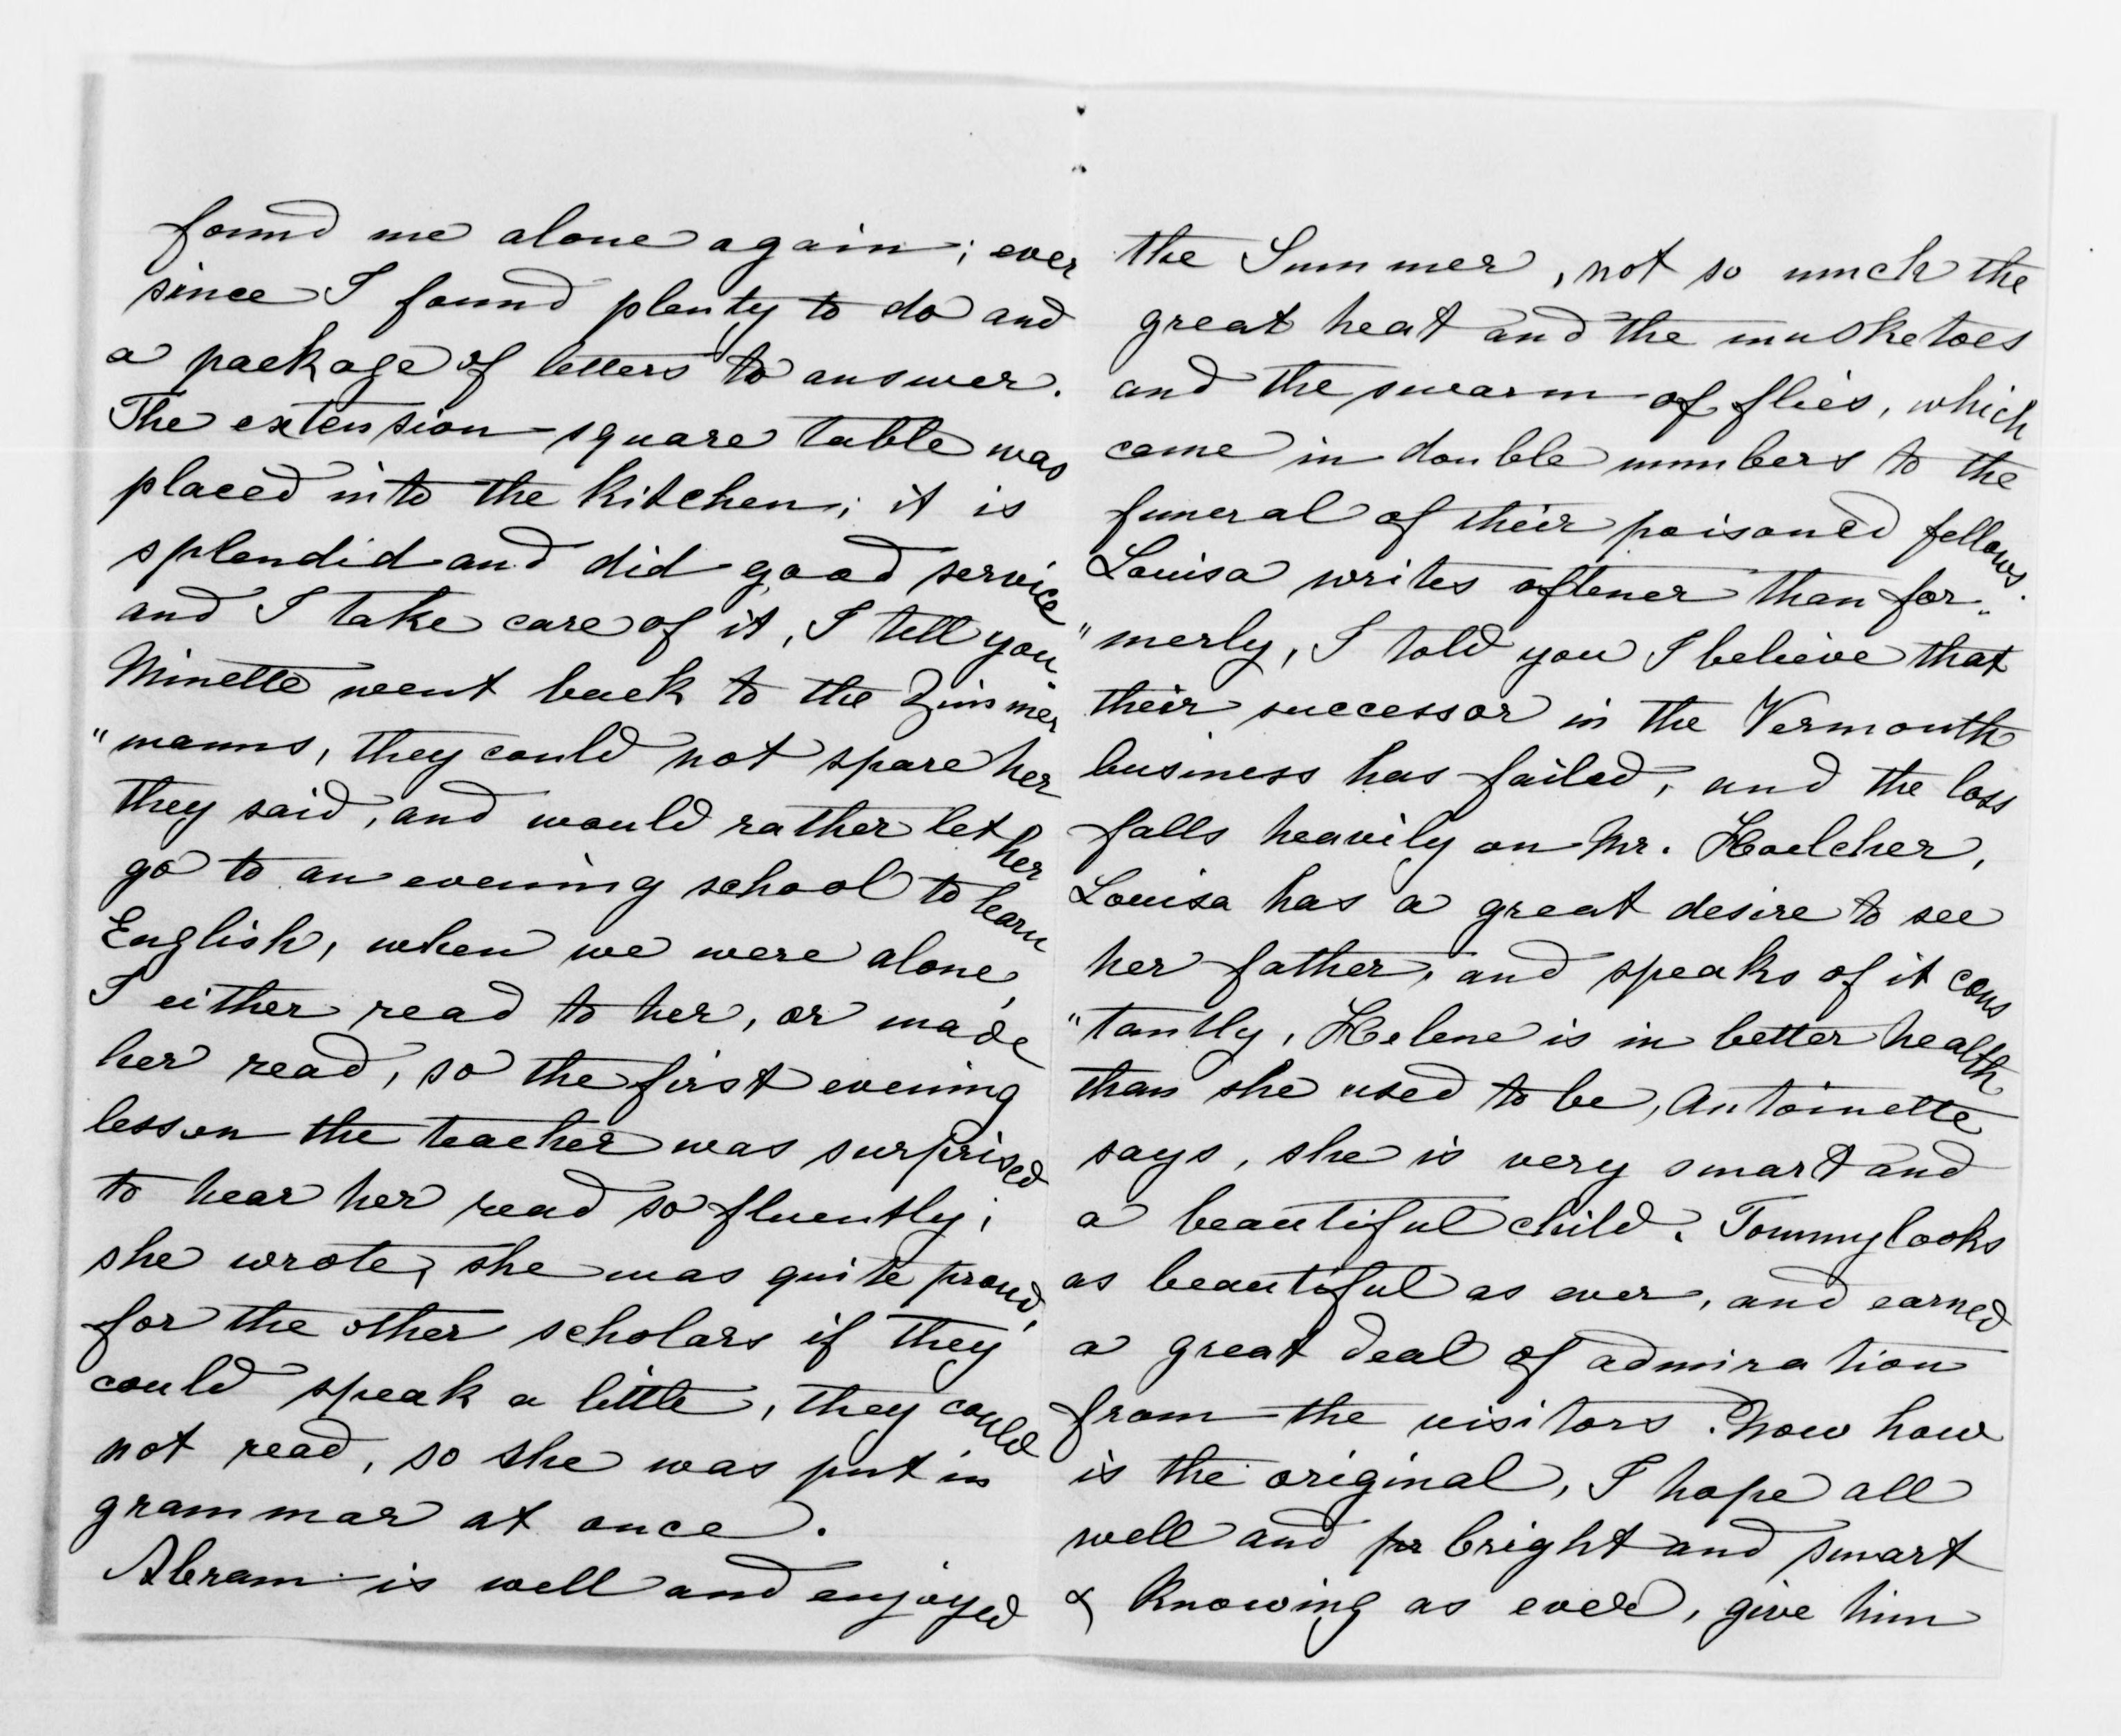 found me alone again; ever
since I found plenty to do and
a package of letters to answer.
The extension square table was
placed into the kitchen; it is
splendid and did good service
and I take care of it, I tell you
Minette went back to the Zimmer
"manns, they could not spare her
they said, and would rather let her
go to an evening school to learn
English, when we were alone,
I either read to her, or made
her read, so the first evening
lesson the teacher was surprised
to hear her read so fluently;
she wrote, she was quite proud,
for the other scholars if they
could speak a little, they could
not read, so she was put in
grammar at once.
Abram is well and enjoyed
the Summer, not so much the
great heat and the musketoes
and the swarm of flies, which
come in double numbers to the
funeral of their poisoned fellows.
Louisa writes oftener than for"
"merly, I told you I believe that
their successor in the Vermouth
business has failed, and the loss
falls heavily on Mr. Hoelcher,
Louisa has a great desire to see
her father, and speaks of it cons
"tantly, Helene is in better health
than she used to be, Antoinette
says, she is very smart and
a beautiful child. Tommy looks
as beautiful as ever, and earned
a great deal of admiration
from the visitors. Now how
is the original, I hope all
well and bright and smart
& knowing as ever, give him